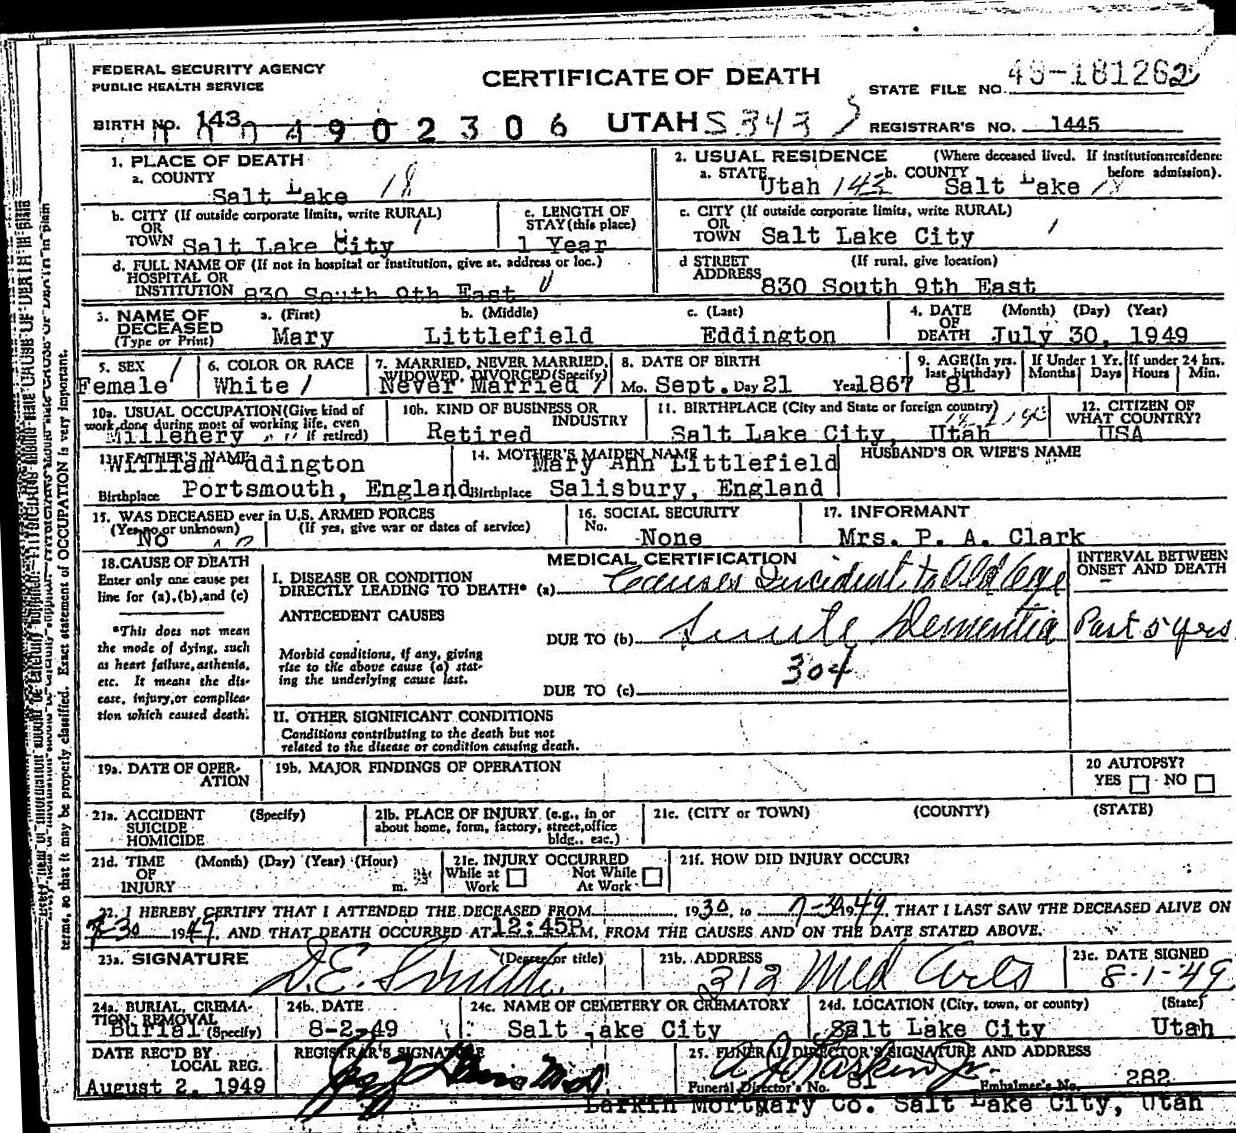 FEDERAL SECURITY AGENCY
PUBLIC HEALTH SERVICE
CERTIFICATE OF DEATH
STATE FILE NO. 49-181262
BIRTH NO. 143 04902306 UTAH S343
REGISTRAR'S NO. 1445
1. PLACE OF DEATH
a. COUNTY
Salt Lake 18
2. USUAL RESIDENCE (Where deceased lived. If institution:residence before admission).
a. STATE Utah 143 b. COUNTY Salt Lake 18
b. CITY (If outside corporate limits, write RURAL)
OR
TOWN Salt Lake City
c. LENGTH OF
STAY (this place)
1 Year
c. CITY (If outside corporate limits, write RURAL)
OR
TOWN Salt Lake City
d. FULL NAME OF (If not in hospital or institution, give st. address or loc.)
HOSPITAL OR
INSTITUTION 830 South 9th East
d STREET (If rural, give location)
ADDRESS 830 South 9th East
3. NAME OF
DECEASED
(Type or Print)
a. (First) b. (Middle) c. (Last)
Mary Littlefield Eddington
4. DATE (Month) (Day) (Year)
OF
DEATH July 30, 1949
5. SEX
Female
6. COLOR OR RACE
White
7. MARRIED, NEVER MARRIED,
WIDOWED, DIVORCED (Specify)
Never Married
8. DATE OF BIRTH
Mo. Sept. Day 21 Year 1867
9. AGE (In yrs. last birthday)
81
If Under 1 Yr.
Months Days
If under 24 hrs.
Hours Min.
10a. USUAL OCCUPATION (Give kind of
work done during most of working life, even
if retired)
Millenery
10b. KIND OF BUSINESS OR
INDUSTRY
Retired
11. BIRTHPLACE (City and State or foreign country)
Salt Lake City, Utah
12. CITIZEN OF
WHAT COUNTRY?
USA
13. FATHER'S NAME
William Eddington
Birthplace Portsmouth, England
14. MOTHER'S MAIDEN NAME
Mary Ann Littlefield
Birthplace Salisbury, England
HUSBAND'S OR WIFE'S NAME
15. WAS DECEASED ever in U.S. ARMED FORCES
(Yes no or unknown) (If yes, give war or dates of service)
No
16. SOCIAL SECURITY
No.
None
17. INFORMANT
Mrs. P. A. Clark
18. CAUSE OF DEATH
Enter only one cause per
line for (a), (b), and (c)
*This does not mean
the mode of dying, such
as heart failure, asthenia,
etc. It means the dis-
ease, injury, or complica-
tion which caused death.
MEDICAL CERTIFICATION
INTERVAL BETWEEN
ONSET AND DEATH
I. DISEASE OR CONDITION
DIRECTLY LEADING TO DEATH* (a) Causes Incident to Old Age
ANTECEDENT CAUSES
DUE TO (b) Senile Dementia Past 5 yrs
304
Morbid conditions, if any, giving
rise to the above cause (a) stat-
ing the underlying cause last.
DUE TO (c)
II. OTHER SIGNIFICANT CONDITIONS
Conditions contributing to the death but not
related to the disease or condition causing death.
19a. DATE OF OPER-
ATION
19b. MAJOR FINDINGS OF OPERATION
20 AUTOPSY?
YES NO
21a. ACCIDENT (Specify)
SUICIDE
HOMICIDE
21b. PLACE OF INJURY (e.g., in or
about home, form, factory, street, office
bldg., eac.)
21c. (CITY or TOWN) (COUNTY) (STATE)
21d. TIME (Month) (Day) (Year) (Hour)
OF
INJURY m.
21e. INJURY OCCURRED
While at Not While
Work At Work
21f. HOW DID INJURY OCCUR?
22. I HEREBY CERTIFY THAT I ATTENDED THE DECEASED FROM 1930, to 7-30 1949, THAT I LAST SAW THE DECEASED ALIVE ON
7-30 1949, AND THAT DEATH OCCURRED AT 12:45P M, FROM THE CAUSES AND ON THE DATE STATED ABOVE.
23a. SIGNATURE (Degree or title)
D. E. Smith
23b. ADDRESS
312 Med Arts
23c. DATE SIGNED
8-1-49
24a. BURIAL, CREMA-
TION, REMOVAL
(Specify)
Burial
24b. DATE
8-2-49
24c. NAME OF CEMETERY OR CREMATORY
Salt Lake City
24d. LOCATION (City, town, or county) (State)
Salt Lake City Utah
DATE REC'D BY
LOCAL REG.
August 2, 1949
REGISTRAR'S SIGNATURE
25. FUNERAL DIRECTOR'S SIGNATURE AND ADDRESS
Funeral Director's No. 81 Embalmer's No. 282
Larkin Mortuary Co. Salt Lake City, Utah
terms, so that it may be properly classified. Exact statement of OCCUPATION is very important.